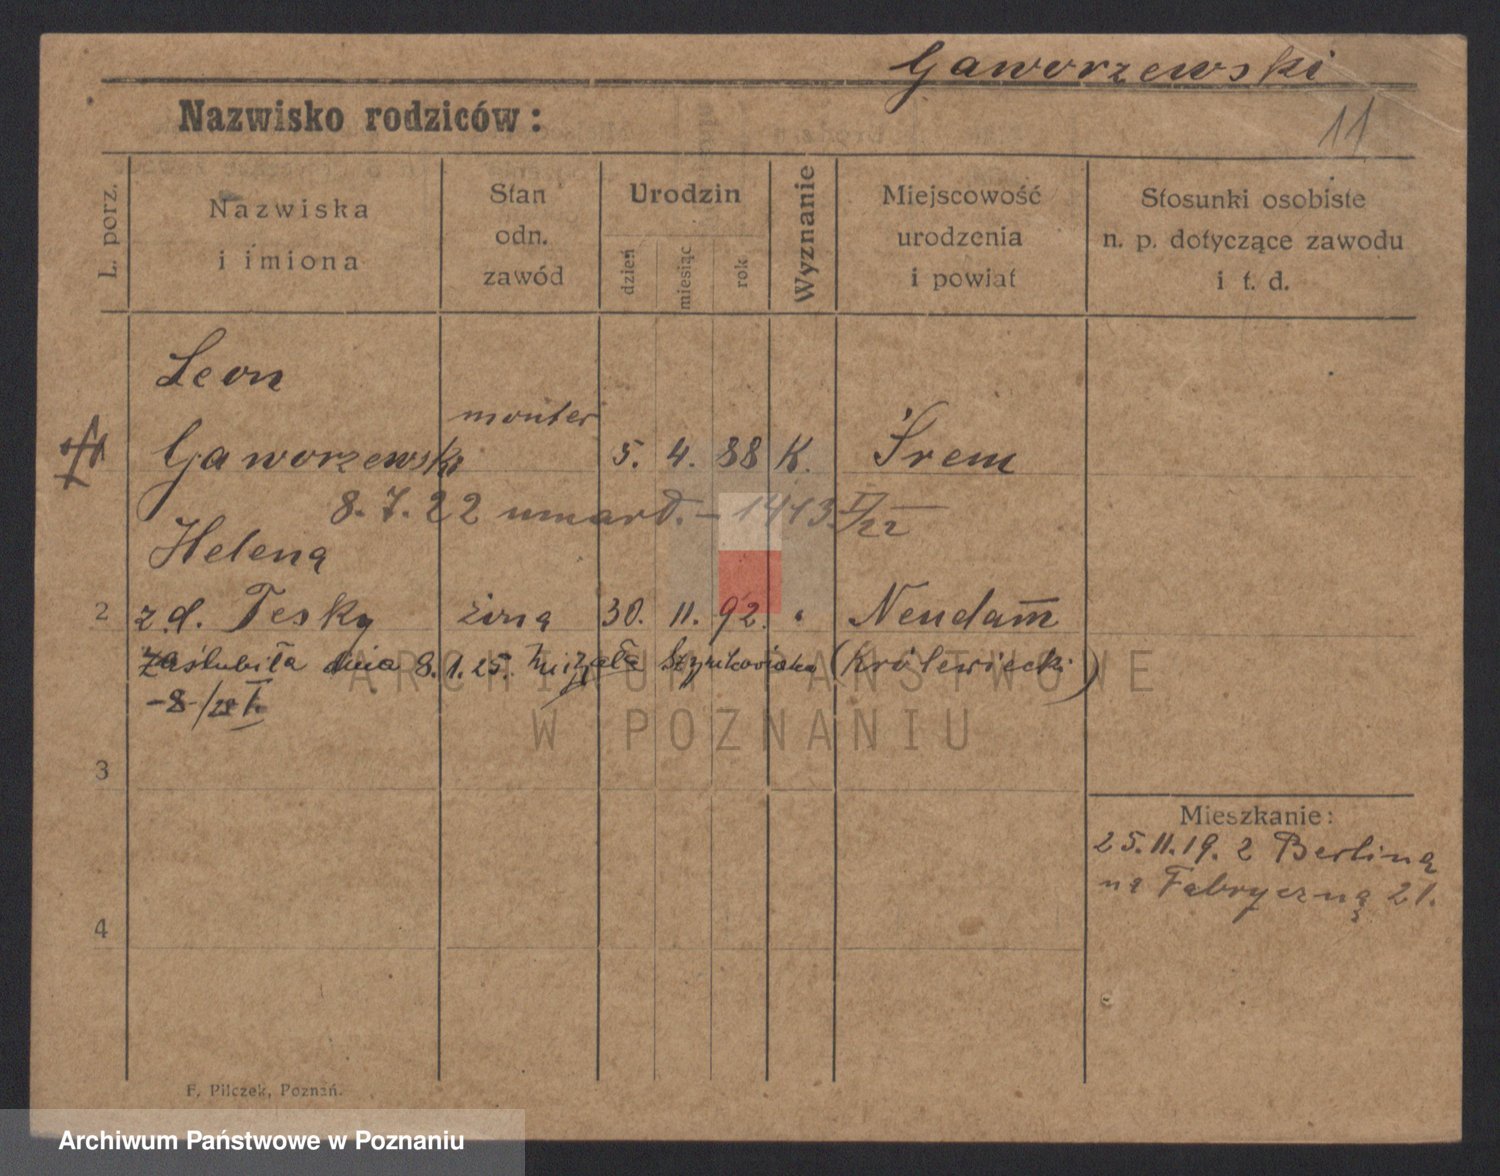 Gaworzewski
Nazwisko rodziców:
11
L. porz.
Nazwiska
i imiona
Stan
odn.
zawód
Urodzin
dzień
miesiąc
rok
Wyznanie
Miejscowość
urodzenia
i powiat
Stosunki osobiste
n. p. dotyczące zawodu
i t. d.
Leon
monter
Gaworzewski 5. 4. 88 K. Śrem
8.7.22 umarł. - 1413 I/22
Helena
2 z d. Teska żona 30. 11. 92. " Neudamm
zaślubiła dnia 8. 1. 25. (Królewiecki)
-8-/25 I.
3
Mieszkanie:
25.11.19. z Berlina
na Fabryczną 21.
4
F. Pilczek, Poznań.
ARCHIWUM PAŃSTWOWE
W POZNANIU
Archiwum Państwowe w Poznaniu